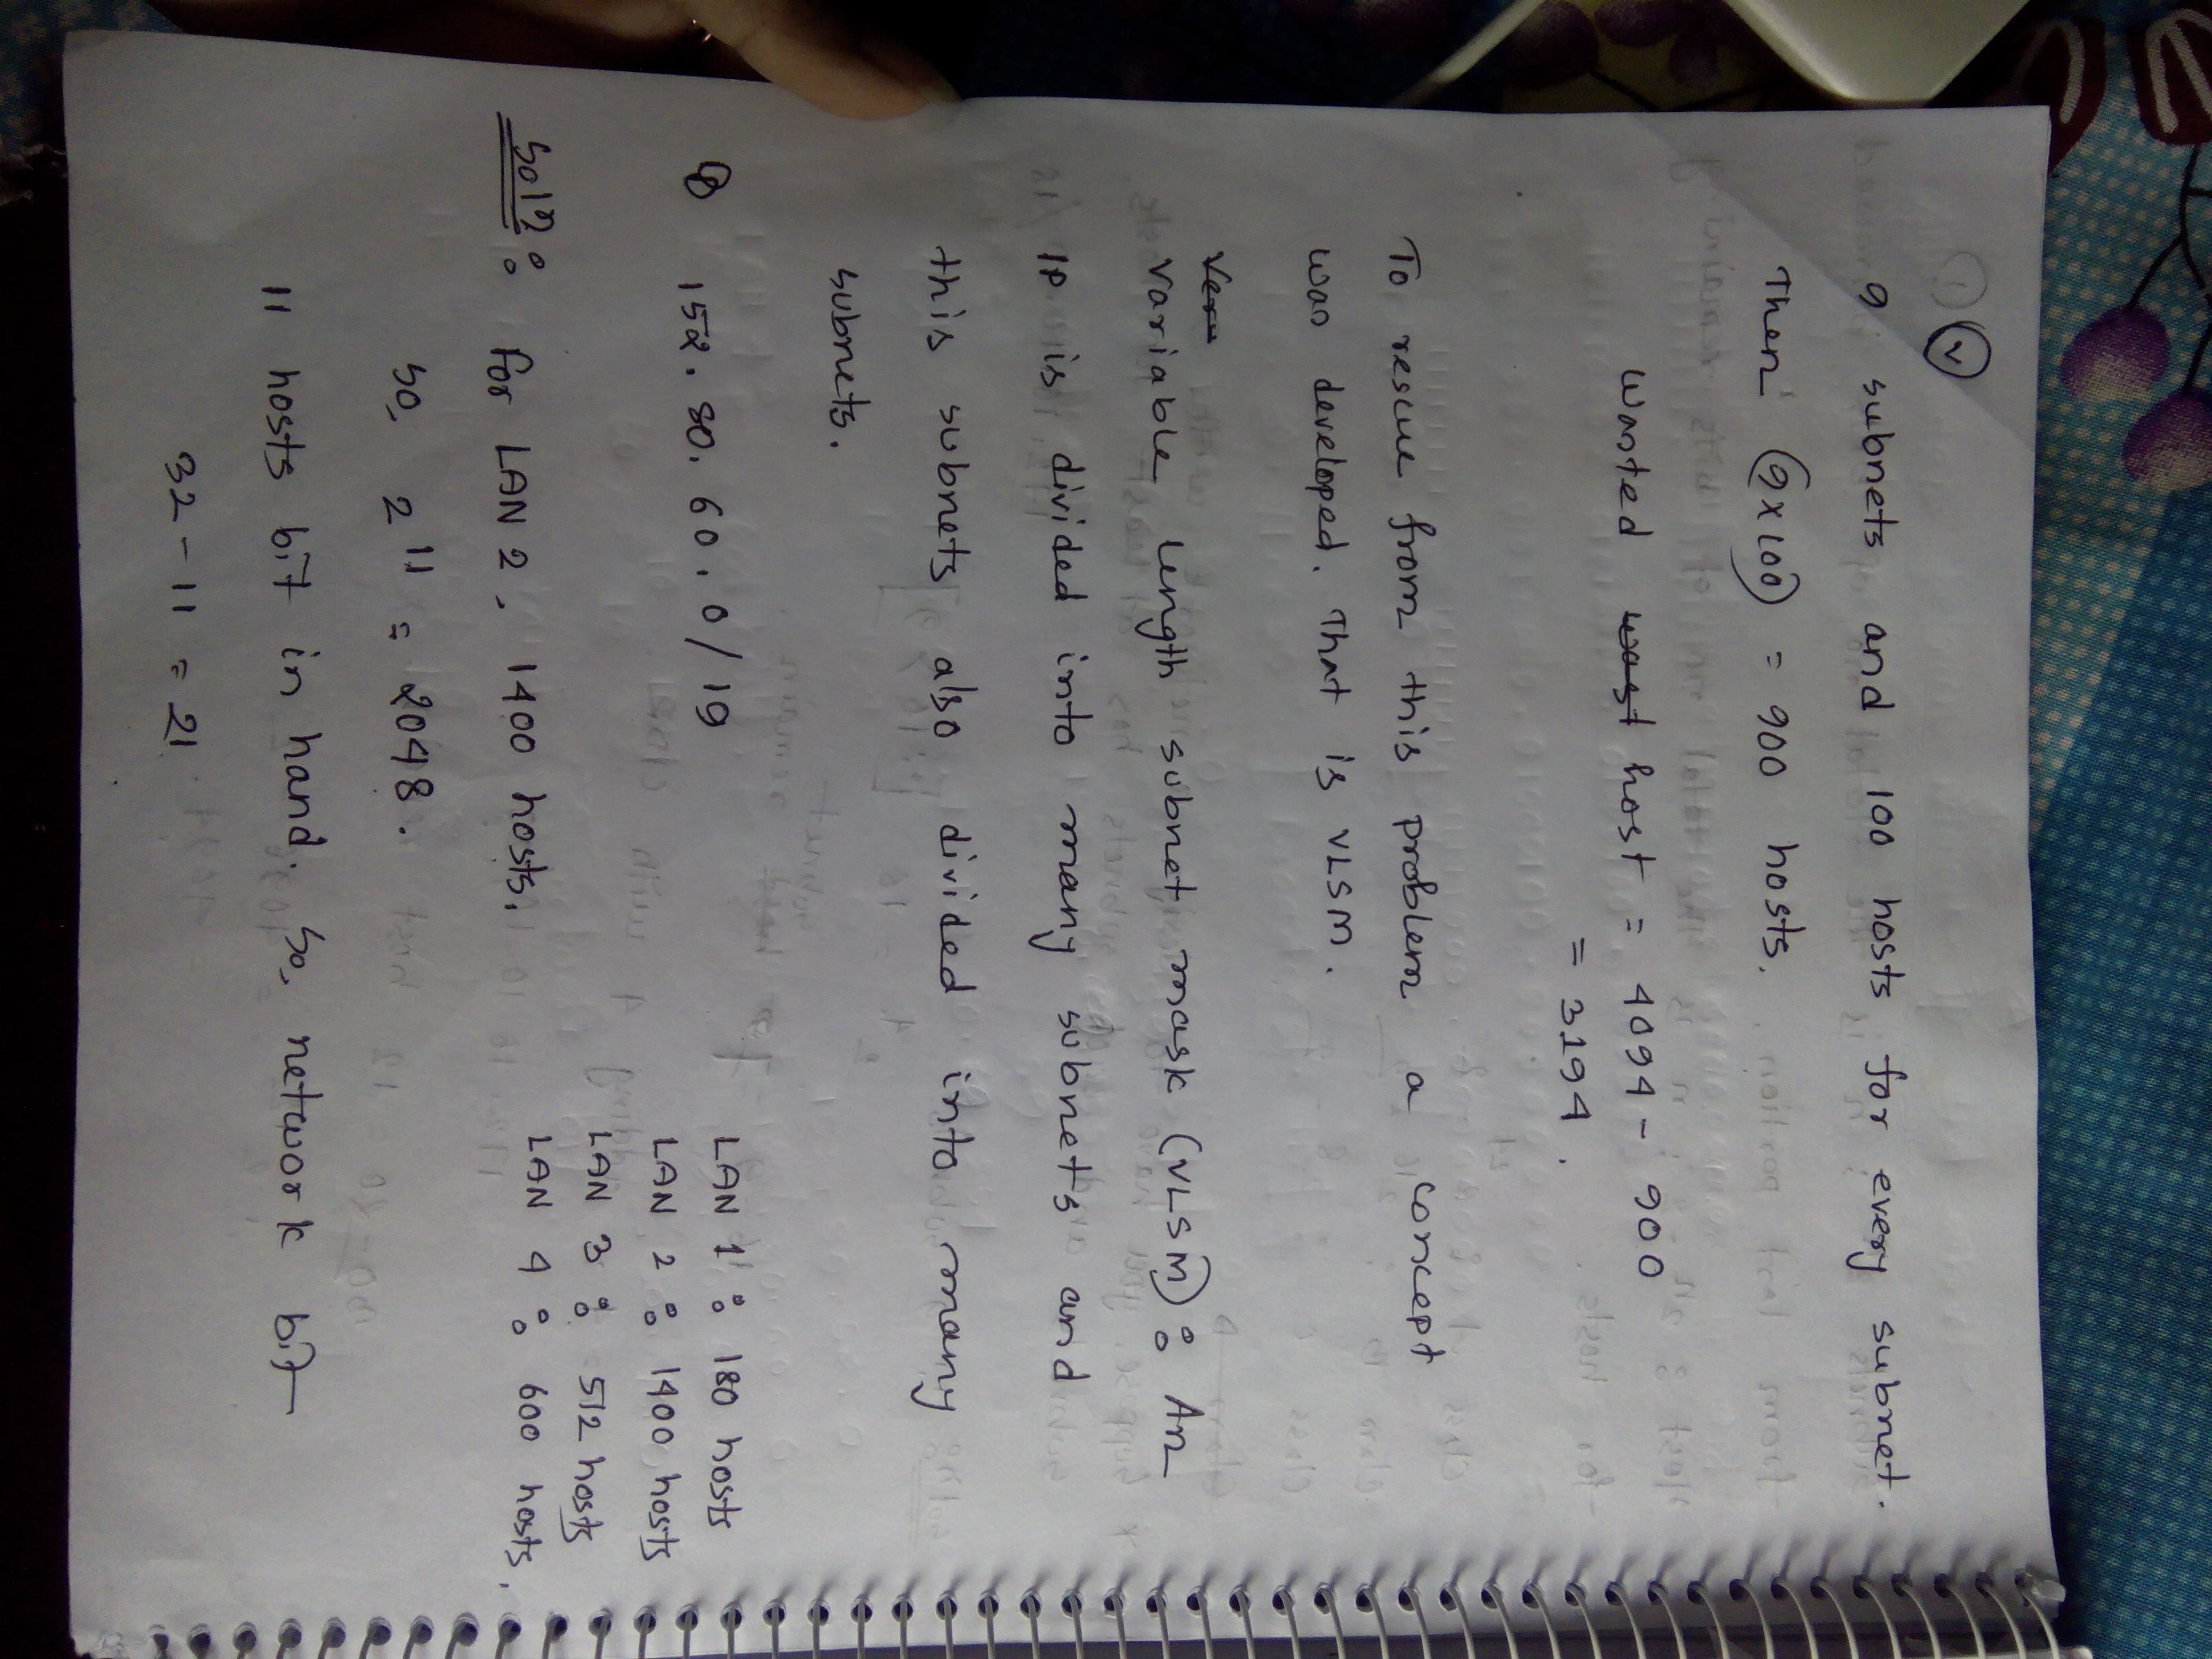 9 subnets and 100 hosts for every subnet.
Then (9x100) = 900 hosts.
Wasted wast host = 4094 - 900
= 3194.
To rescue from this problem a concept
was developed. That is VLSM.
Veru
Variable Length subnet mask (VLSM): An
IP is divided into many subnets and
this subnets also divided into many
subnets.
Q 152.80.60.0/19
LAN 1: 180 hosts
LAN 2: 1400 hosts
LAN 3: 512 hosts
LAN 4: 600 hosts.
Soln: for LAN 2, 1400 hosts.
So, 2^11 = 2048.
11 hosts bit in hand. So, network bit
32-11 = 21